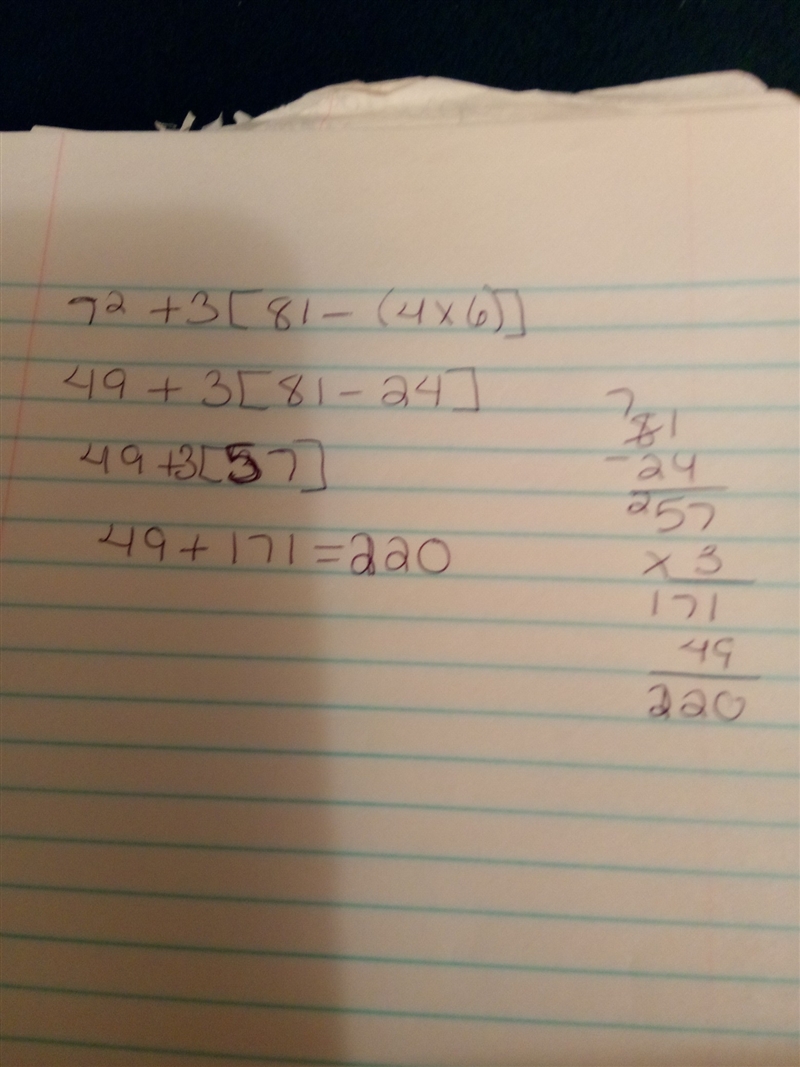 7² + 3[81 - (4x6)]
49 + 3[81 - 24]
49 + 3[57]
49 + 171 = 220
7
81
- 24
²57
x 3
171
49
220